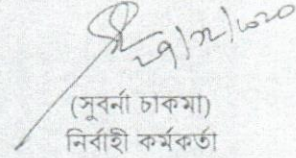 ২৭/১২/২০২০
(সুবর্না চাকমা)
নির্বাহী কর্মকর্তা